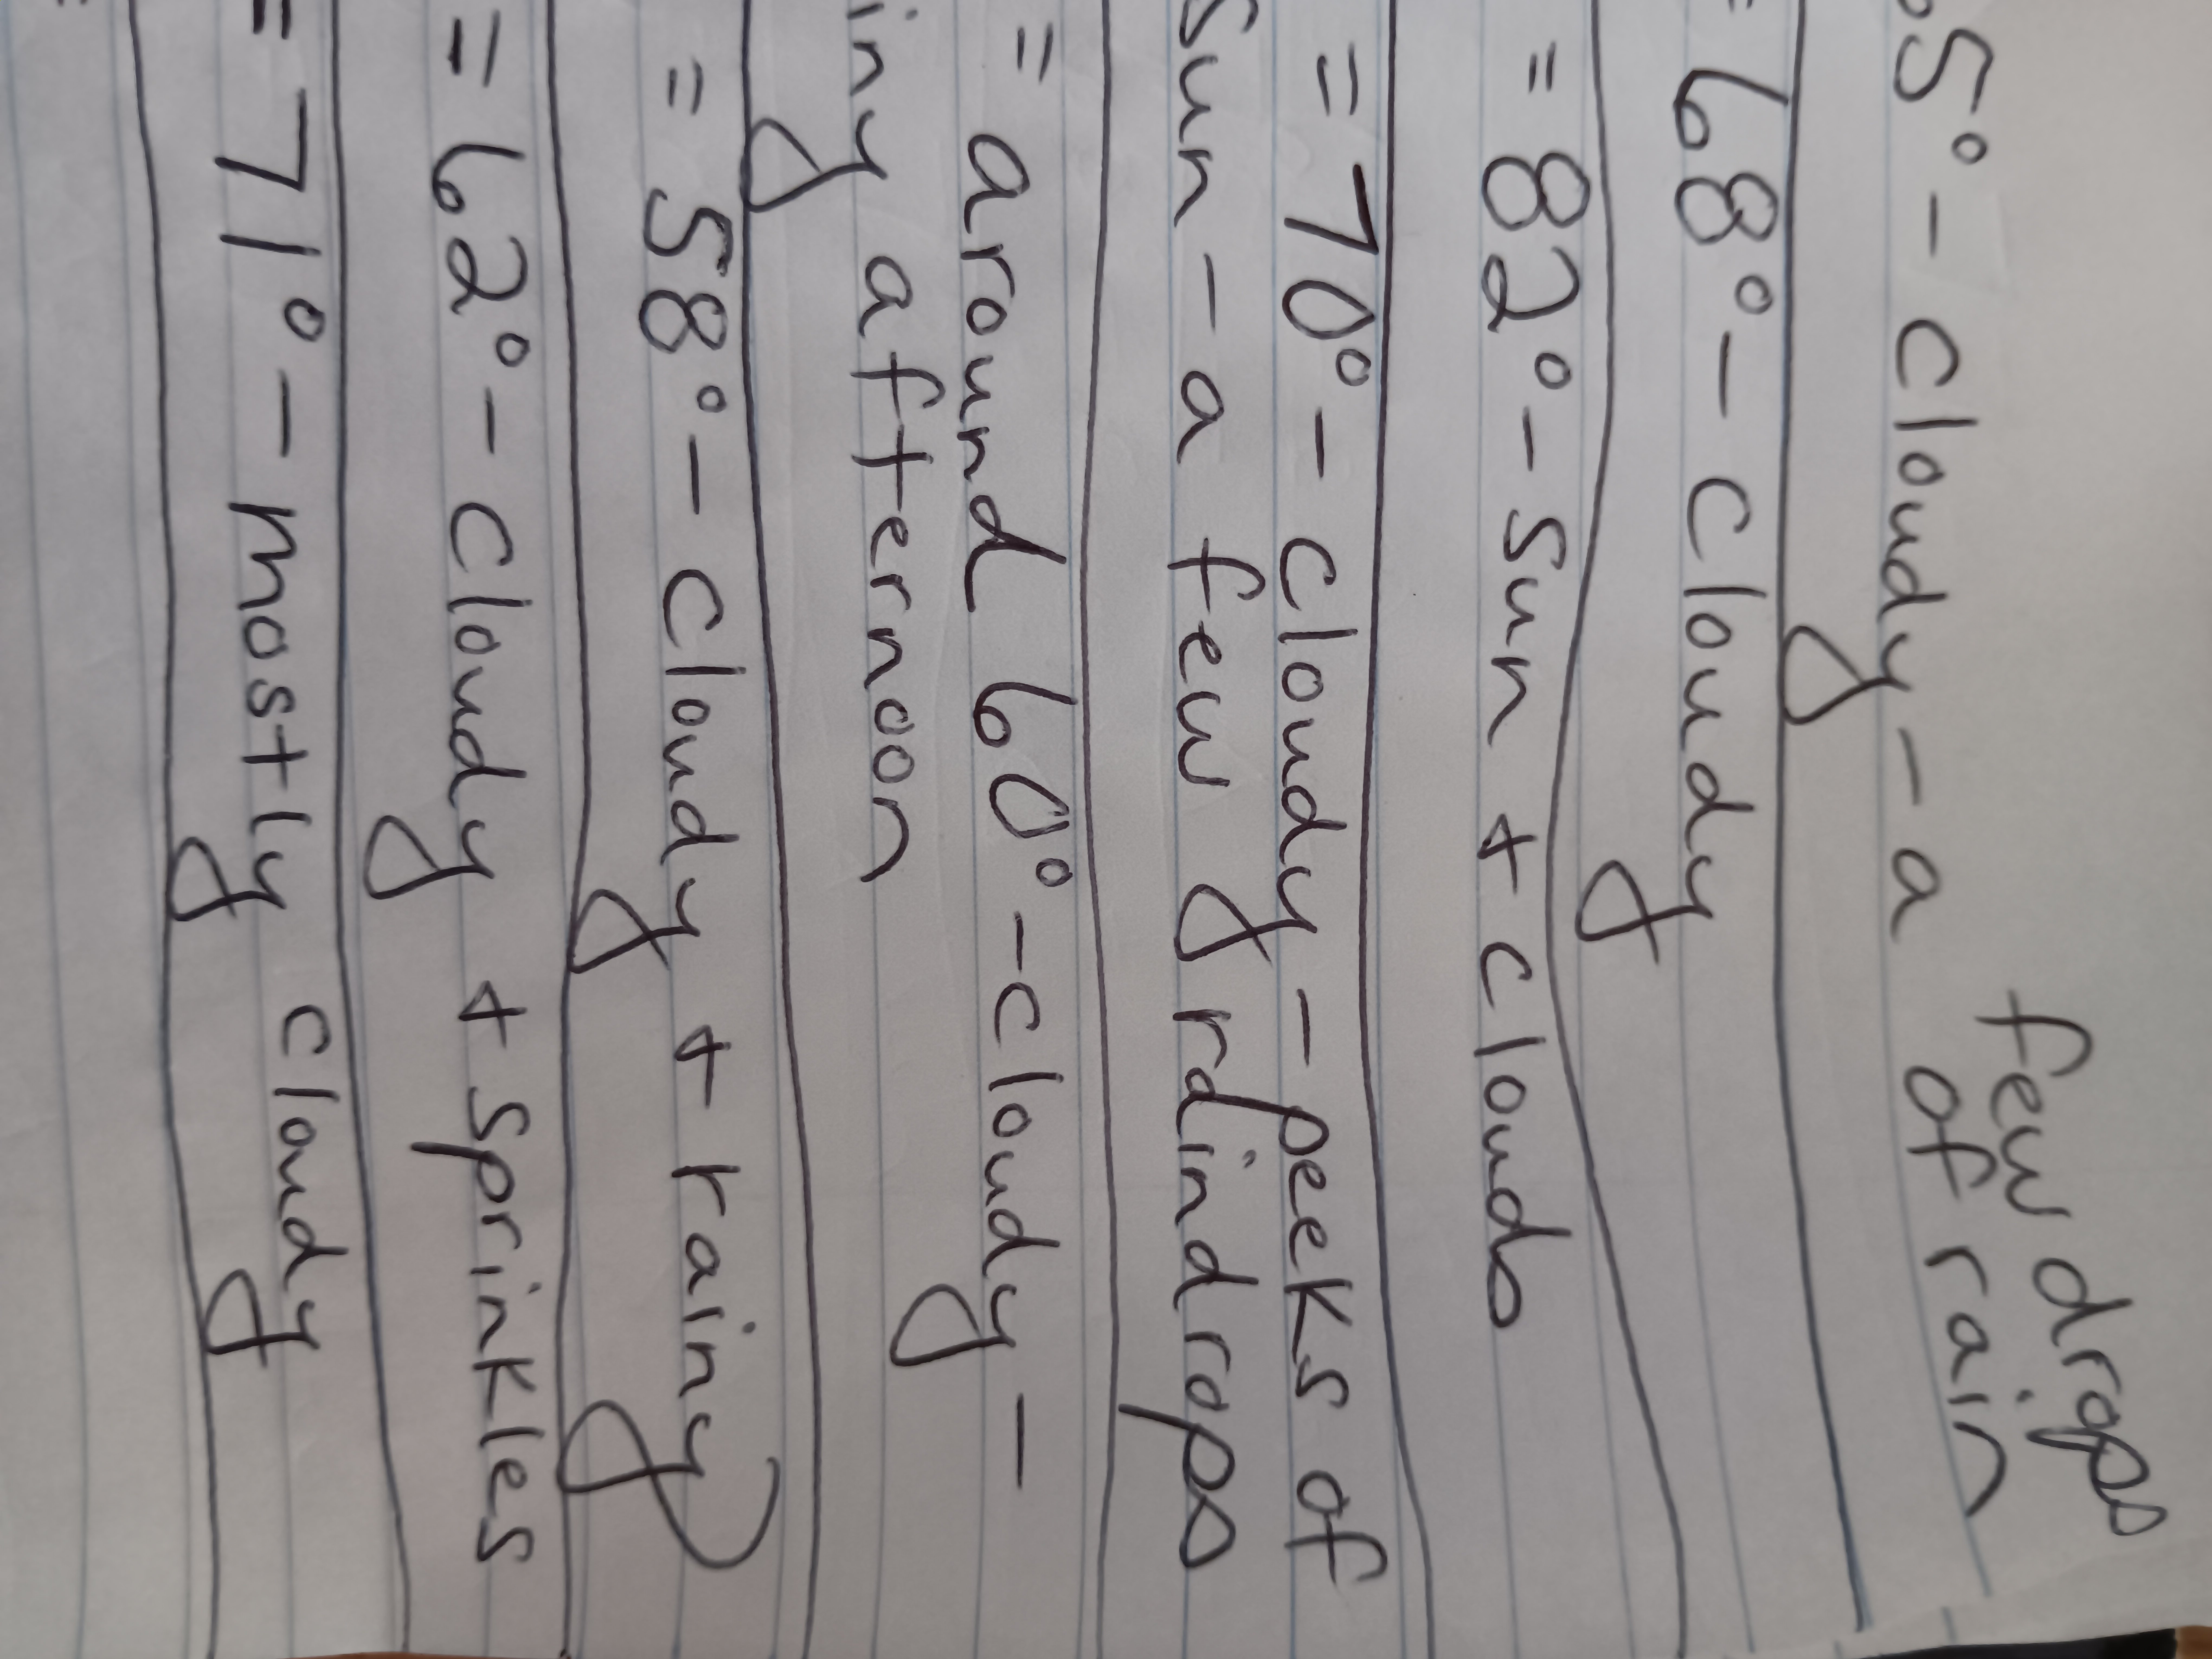 few drops
5° - cloudy - a of rain
= 68° - cloudy
= 82° - sun + clouds
= 70° - cloudy - peeks of
sun - a few raindrops
= around 60° - cloudy -
iny afternoon
= 58° - cloudy + rainy
= 62° - cloudy + sprinkles
= 71° - mostly cloudy